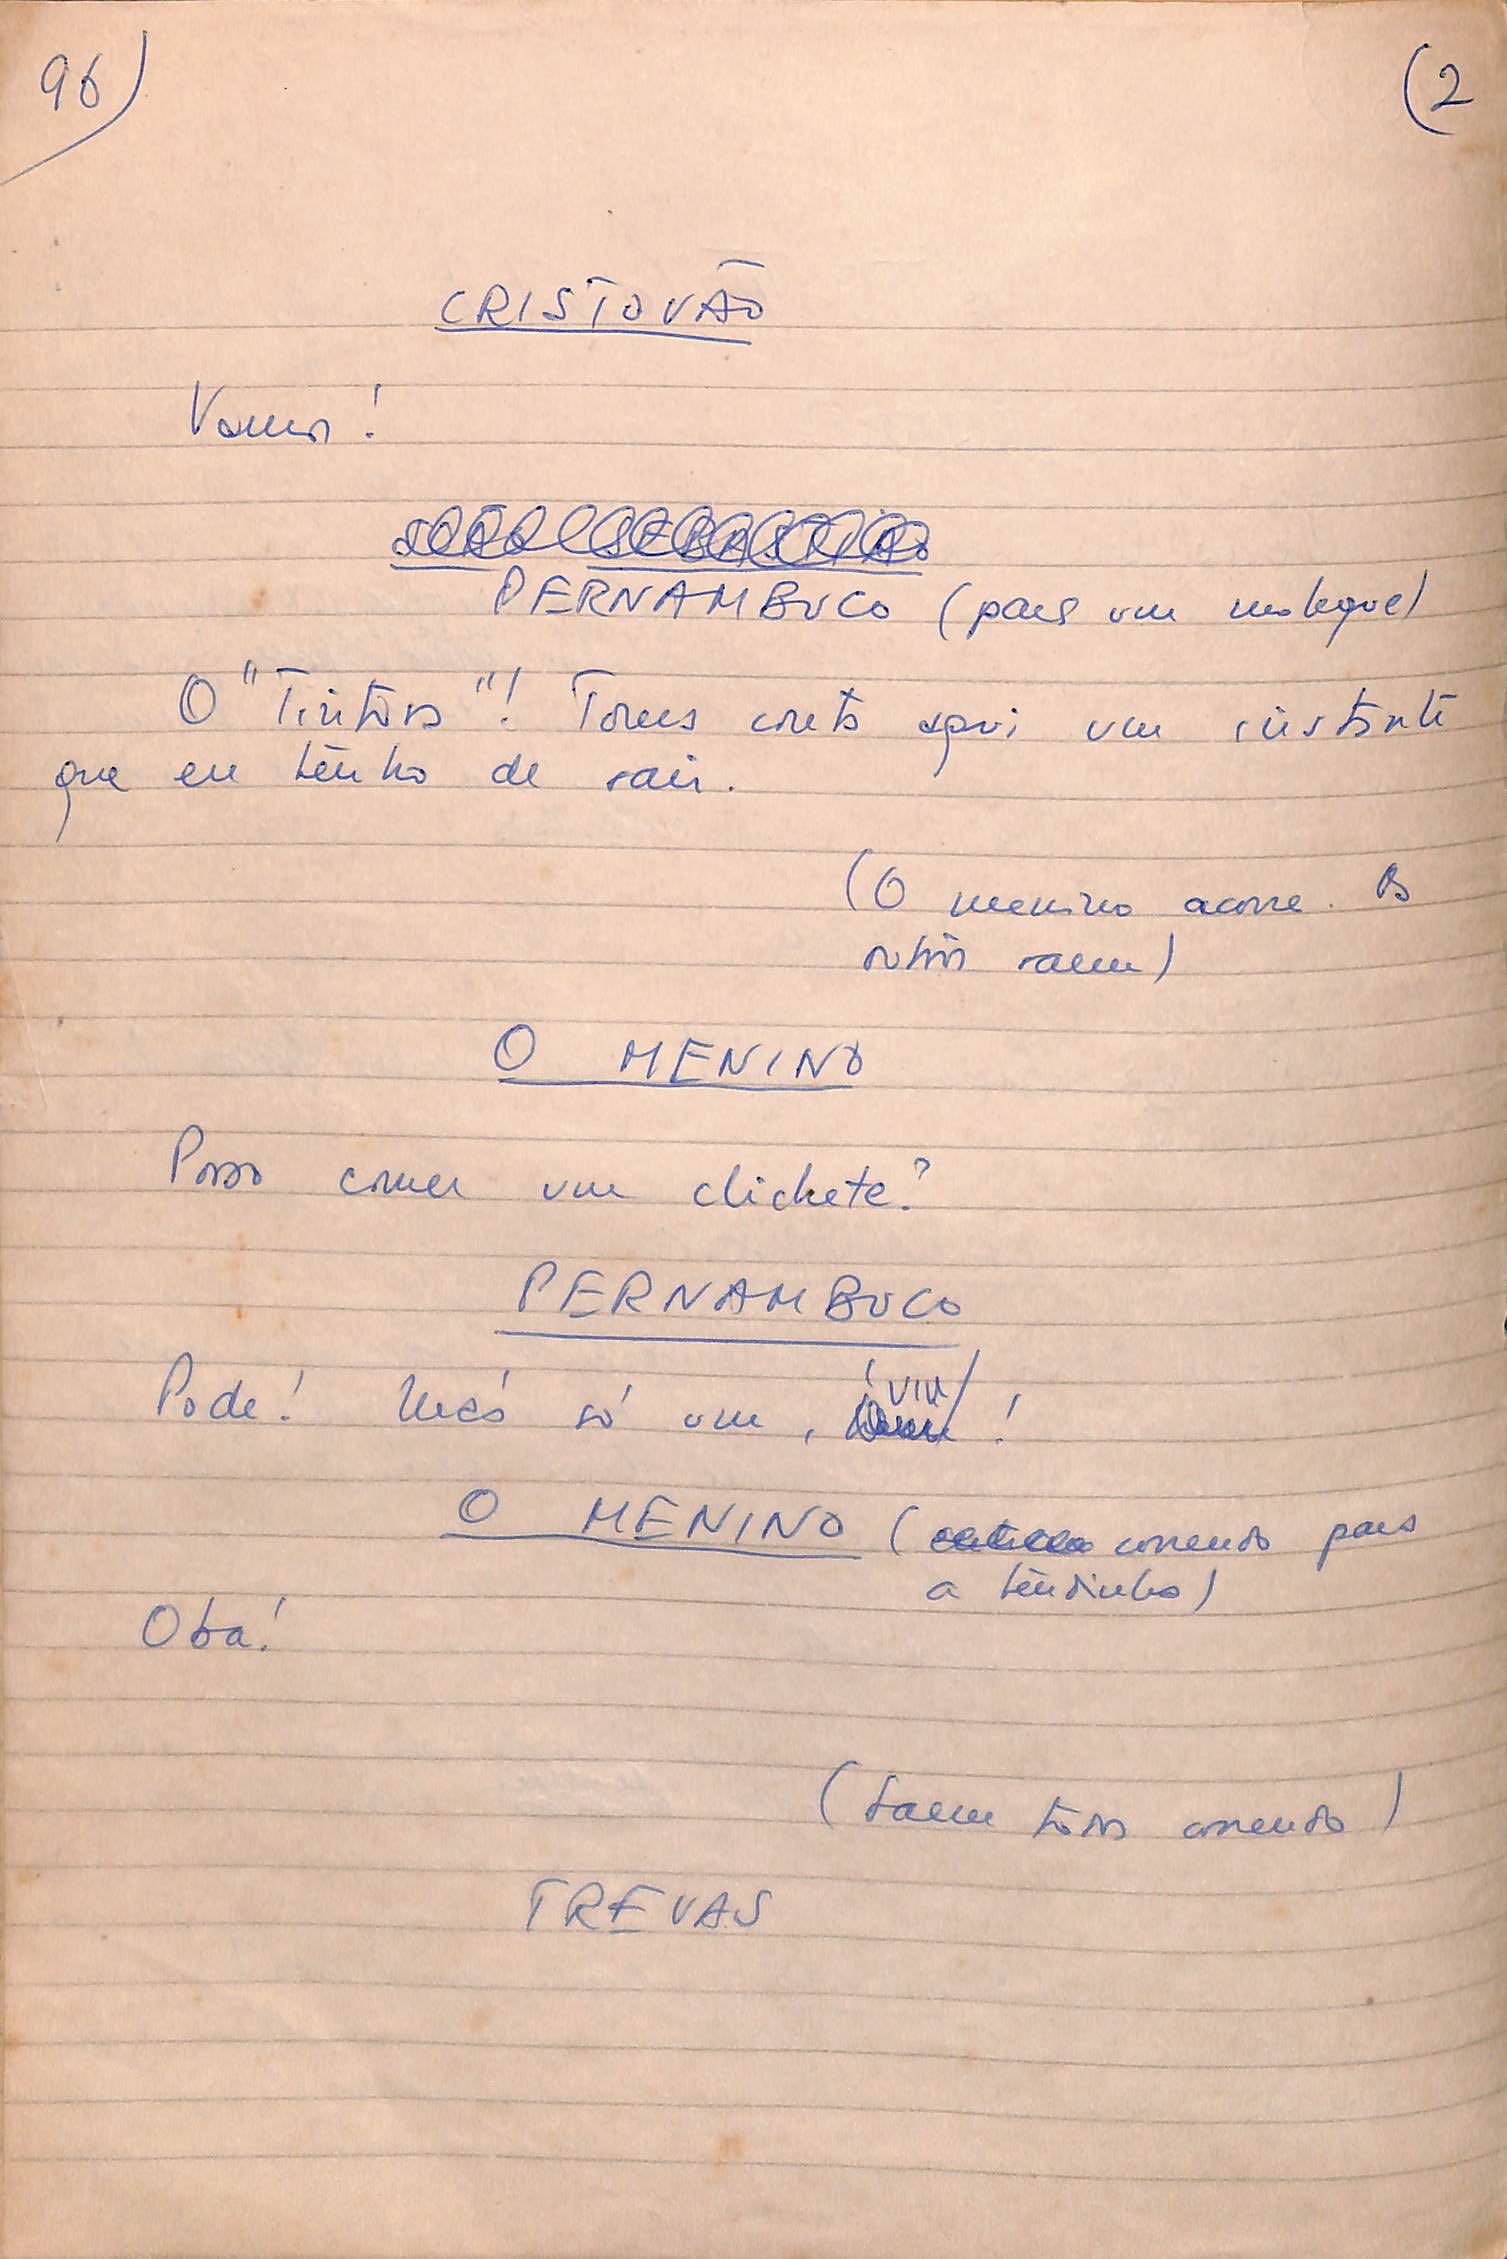 96)
(2
CRISTOVÃO
Vamos!
SÃO SEBASTIÃO
PERNAMBUCO (para um moleque)
O "Tiritoso"! Toma conta aqui um instante
que eu tenho de sair.
(O menino acorre. Os
outros saem)
O MENINO
Posso comer um chichete?
PERNAMBUCO
Pode! Mas só um, viu!
O MENINO (correndo para
a tendinha)
Oba!
(Saem todos correndo)
TREVAS